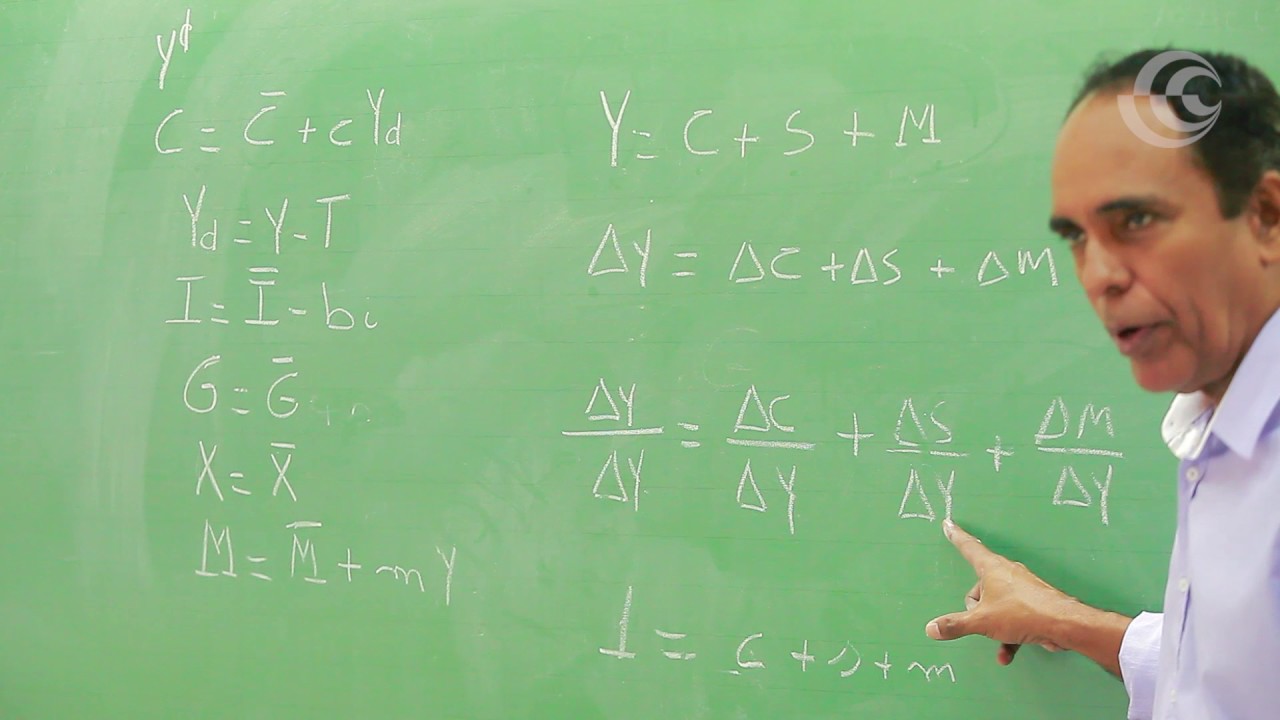 Yᵈ
C = C̄ + cYd
Yd = Y - T
I = Ī - bi
G = Ḡ
X = X̄
M = M̄ + mY
Y = C + S + M
ΔY = ΔC + ΔS + ΔM
ΔY/ΔY = ΔC/ΔY + ΔS/ΔY + ΔM/ΔY
1 = c + s + m